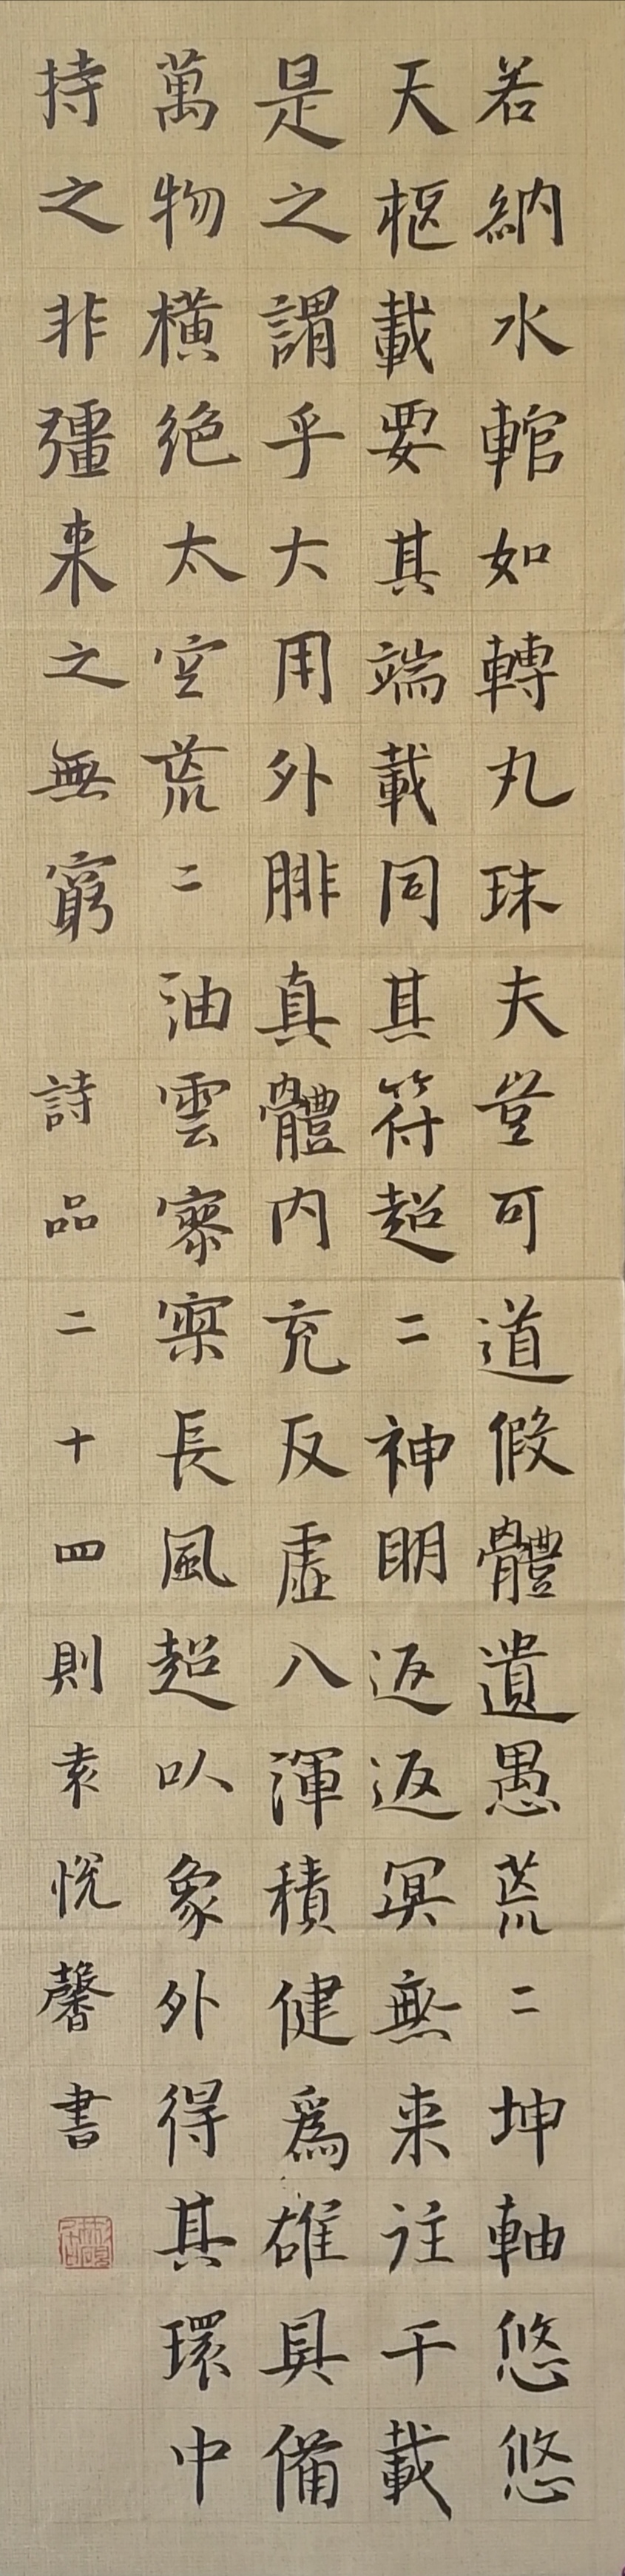 若納水輨如轉丸珠夫豈可道假體遺愚荒二坤軸悠悠
天樞載要其端載同其符超二神明返返冥無来往千載
是之謂乎大用外腓真體内充反虛入渾積健爲雄具備
萬物橫絶太空荒二油雲寥寥長風超以象外得其環中
持之非彊来之無窮 詩品二十四則 袁悅馨書